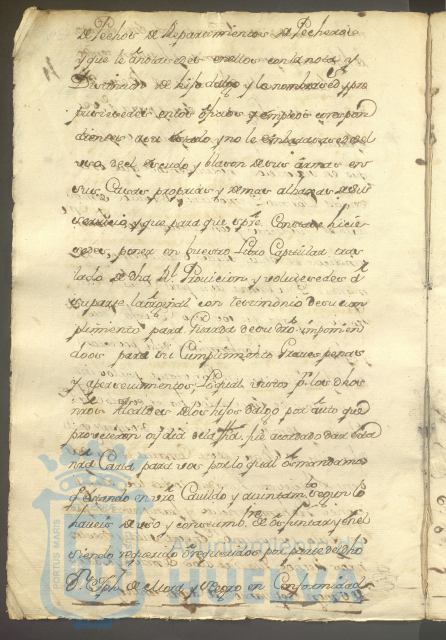 de Pechos de Repartimientos de Pecheros
y que le anotaredes en ellos con la nota y
Distincion de hijo dalgo y lo nombraredes y pro
pusieredes en los ofizios y empleos correspon
dientes a su estado y no le embarazaredes el
uso de el escudo y blason de sus armas en
sus Casas propias y demas alhajas de su
servicio, y que para que siempre Conste hicie
redes, poner en vuestro Libro Capitular tras
lado de dha Rl Provicion y volvieredes a
su parte la original con testimonio de su cum
plimiento para Guarda de su dro imponien
doos para su Cumplimiento Graves penas
y apercevimientos, Lo qual visto por los dhos
nros Alcaldes de los hijos dalgo por auto que
proveieron oi dia de la fha fue acordado dar esta
nra Carta para vos por lo qual os mandamos
q estando en vro Cavildo y aiuntamto segun lo
haveis de uso y costumbre de os juntar y siendo
siendo requerido o requeridos por parte del dho
Dn Jph de Mora y Negro en Conformidad